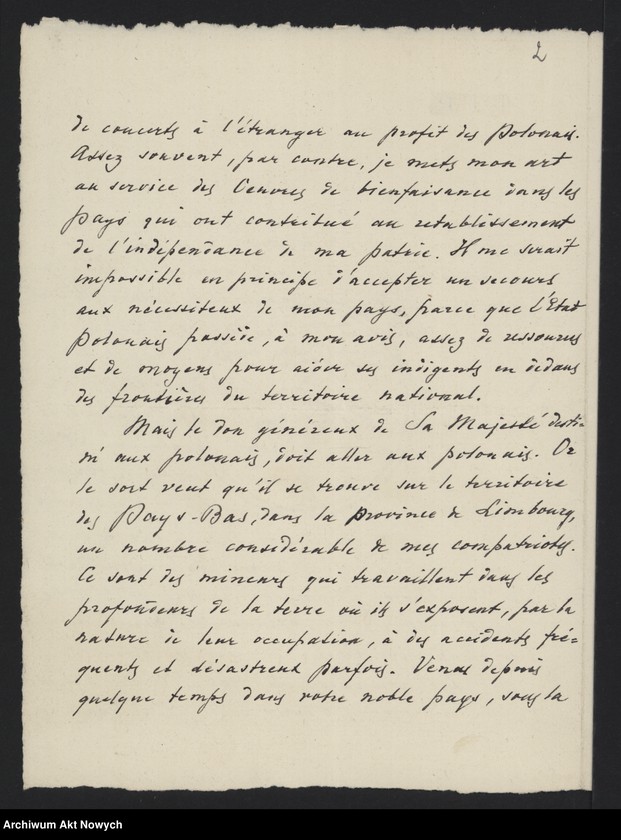 2
de concerts à l'étranger au profit des Polonais.
Assez souvent, par contre, je mets mon art
au service des Oeuvres de bienfaisance dans les
pays qui ont contribué au rétablissement
de l'indépendance de ma patrie. Il me serait
impossible en principe d'accepter un secours
aux nécessiteux de mon pays, parce que l'État
Polonais possède, à mon avis, assez de ressources
et de moyens pour aider ses indigents en dedans
des frontières du territoire national.
Mais le don généreux de Sa Majesté desti-
né aux polonais, doit aller aux polonais. Or
le sort veut qu'il se trouve sur le territoire
des Pays-Bas, dans la province de Limbourg,
un nombre considérable de mes compatriotes.
Ce sont des mineurs qui travaillent dans les
profondeurs de la terre où ils s'exposent, par la
nature de leur occupation, à des accidents fré-
quents et désastreux parfois. Venus depuis
quelque temps dans votre noble pays, sous la
Archiwum Akt Nowych